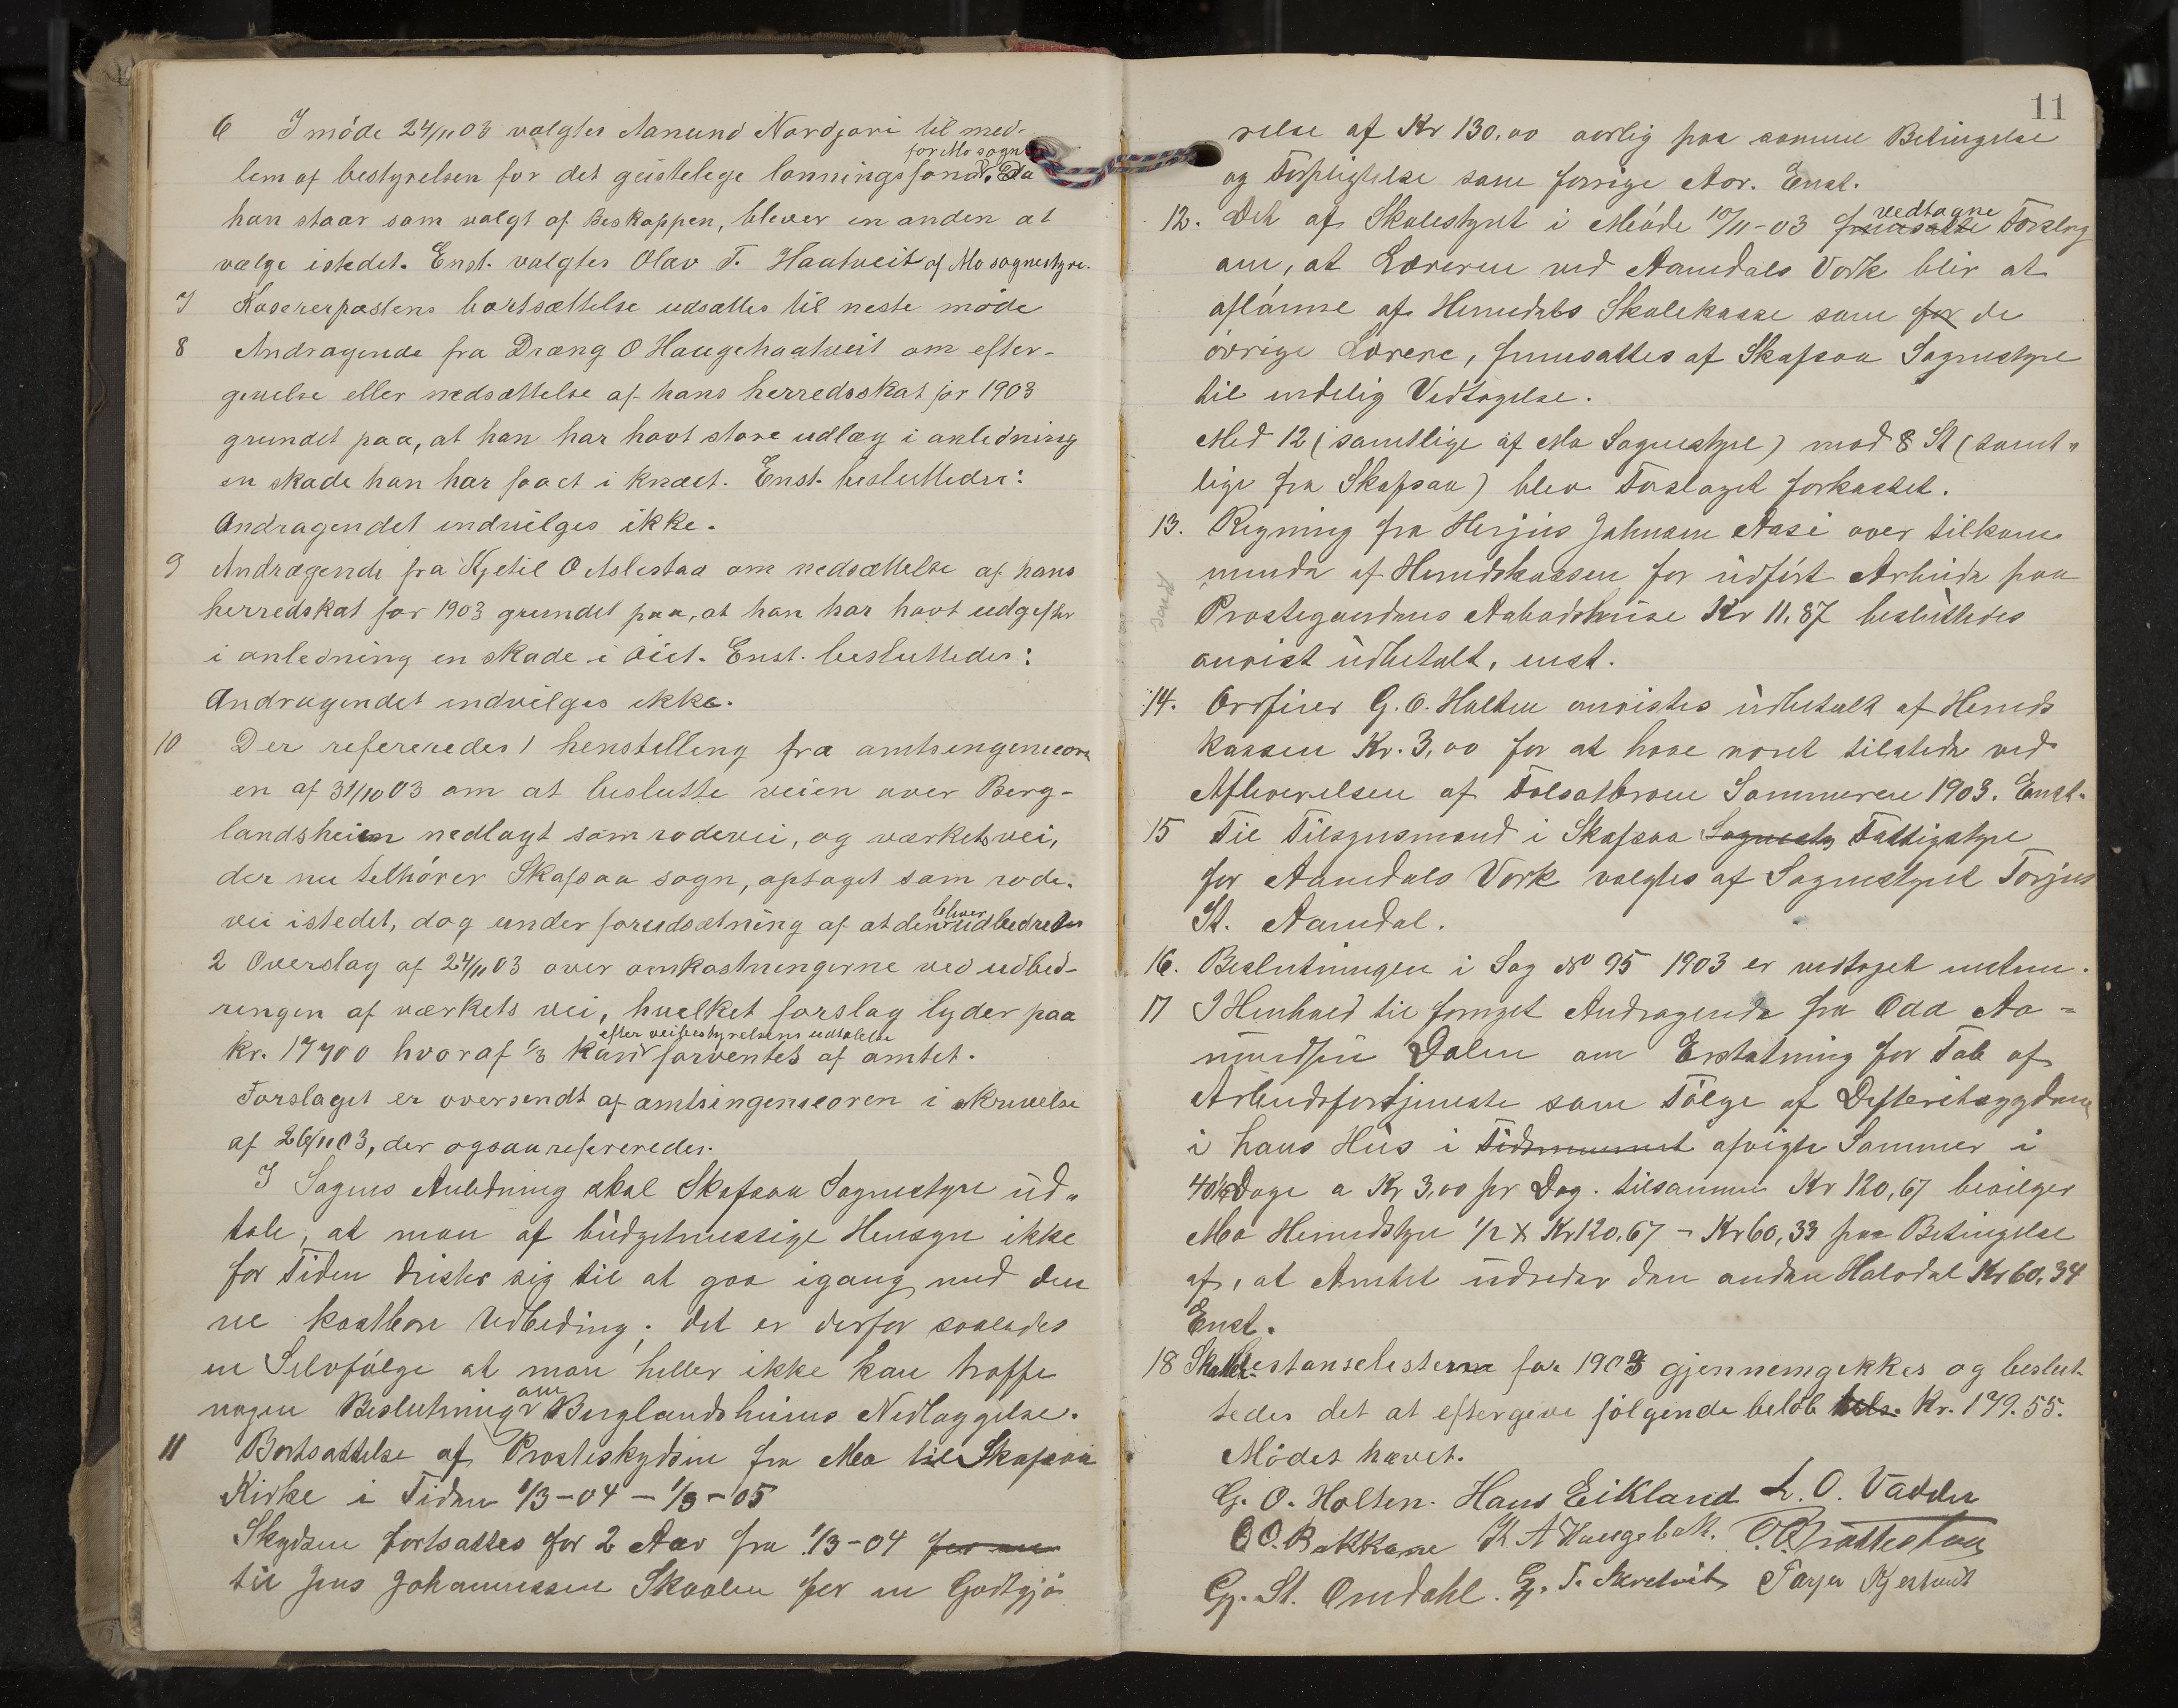 6 I móde 24/11 03 valgtes Aanund Nordgari til med-
for Mo sogn
lem af bestyrelsen for det geistelege lønningsfond. Da
han staar som valgt af Beskappen, blever en anden at
vælge istedet. Enst. valgtes Olav T. Haatveit af Mo sognestyre.
7 Kasererpostens bortsættelse udsættes til neste møde
8 Andragende fra Dræng O Haugehaatveit om efter-
givelse eller nedsættelse af hans herredsskat for 1903
grundet paa, at han har havt store udlæg i anledning
en skade han har faaet i knæet. Enst. besluttedes:
Andragendet indvilges ikke.
9 Andragende fra Kjetil O Aslestaa om nedsættelse af hans
herredskat for 1903 grundet paa, at han har havt udgefter
i anledning en skade i Öiet. Enst. besluttedes:
Andragendet indvilges ikke.
10 Der refereredes 1 henstilling fra amtsingeniøren
en af 31/10 03 om at beslutte veien over Berg-
landsheien nedlagt som rodevei, og værkets vei,
der nu tilhører Skafsaa sogn, optaget som rode-
vei istedet, dog under forudsætning af at den blever udbedret
2 Overslag af 24/11 03 over omkostningerne ved udbed-
ringen af værkets vei, hvilket forslag lyder paa
efter veibestyrelsens udtalelse
kr. 17700 hvoraf 1/3 kan forventes af amtet.
Forslaget er oversendt af amtsingeniøren i skrivelse
af 26/11 03, der ogsaa refereredes.
I Sagens Anledning skal Skafsaa Sognestyre ud-
tale, at man af budgetmessige Hensyn ikke
for Tiden drister sig til at gaa igang med den
ne kostbare Udbeding; det er derfor saaledes
en Selvfölge at man heller ikke kan træffe
nogen Beslutning om Berglandsheiens Nedlæggelse.
11 Bortsættelse af Prosteskydsen fra Mo til Skafsaa
Kirke i Tiden 1/3-04 - 1/3-05
Skydsen fortsættes for 2 Aar fra 1/3-04 for en
til Jens Johannessen Skaalen for en Godtgjö
11
relse af Kr 130,00 aarlig paa samme Betingelse
og Forpligtelse som forrige Aar. Enst.
12. Det af Skolestyret i Möde 10/11-03 fremsatte vedtagne Forslag
om, at Læreren ved Aamdals Værk blir at
aflönne af Herredets Skolekasse som for de
övrige Lærere, fremsattes af Skafsaa Sognestyre
til endelig Vedtagelse.
Med 12 (samtlige af Mo Sognestyre) mod 8 St (samt-
lige fra Skafsaa) blev Forslaget forkastet.
13. Regning fra Herjus Johnsen Aase over tilkom-
mende af Herredskassen for udfört Arbeide paa
sendt
Prostegaardens Aabodshuse Kr 11,87 besluttedes
anvist udbetalt, enst.
14. Ordförer G. O. Holten anvistes udbetalt af Herreds
kassen Kr. 3,00 for at have været tilstede ved
Afleverelsen af Folsætbroen Sommeren 1903. Enst.
15 Til Tilsynsmand i Skafsaa Sognesty Fattigstyre
for Aamdals Værk valgtes af Sognestyret Torjus
St. Aamdal.
16. Beslutningen i Sag No 95 1903 er vedtaget
17 I Henhold til fornyet Andragende fra Odd Aa-
mundsen Dalen om Erstatning for Tab af
Arbeidsfortjeneste som Fölge af Defteritsygdom
i hans Hus i Tidsrummet afvigte Sommer i
Dage a Kr 3,00 pr Dag. tilsammen Kr 120,67 bevilger
Mo Herredstyre 1/2 x Kr 120,67 = Kr 60,33 paa Betingelse
af, at Amtet udreder den anden Halvdel Kr 60,34
Enst.
18 Skatterestanselisterne for 1903 gjennemgikkes og beslut-
tedes det at eftergive følgende beløb tils. Kr. 179.55.
Mödet hævet.
G. O. Holten. Hans Eikland L. O. Vadder
O O. Bakkane K A Haugebak. O. Brattestaa
G. St. Omdahl. G. T. Skredvit Tarjei Kjestveit